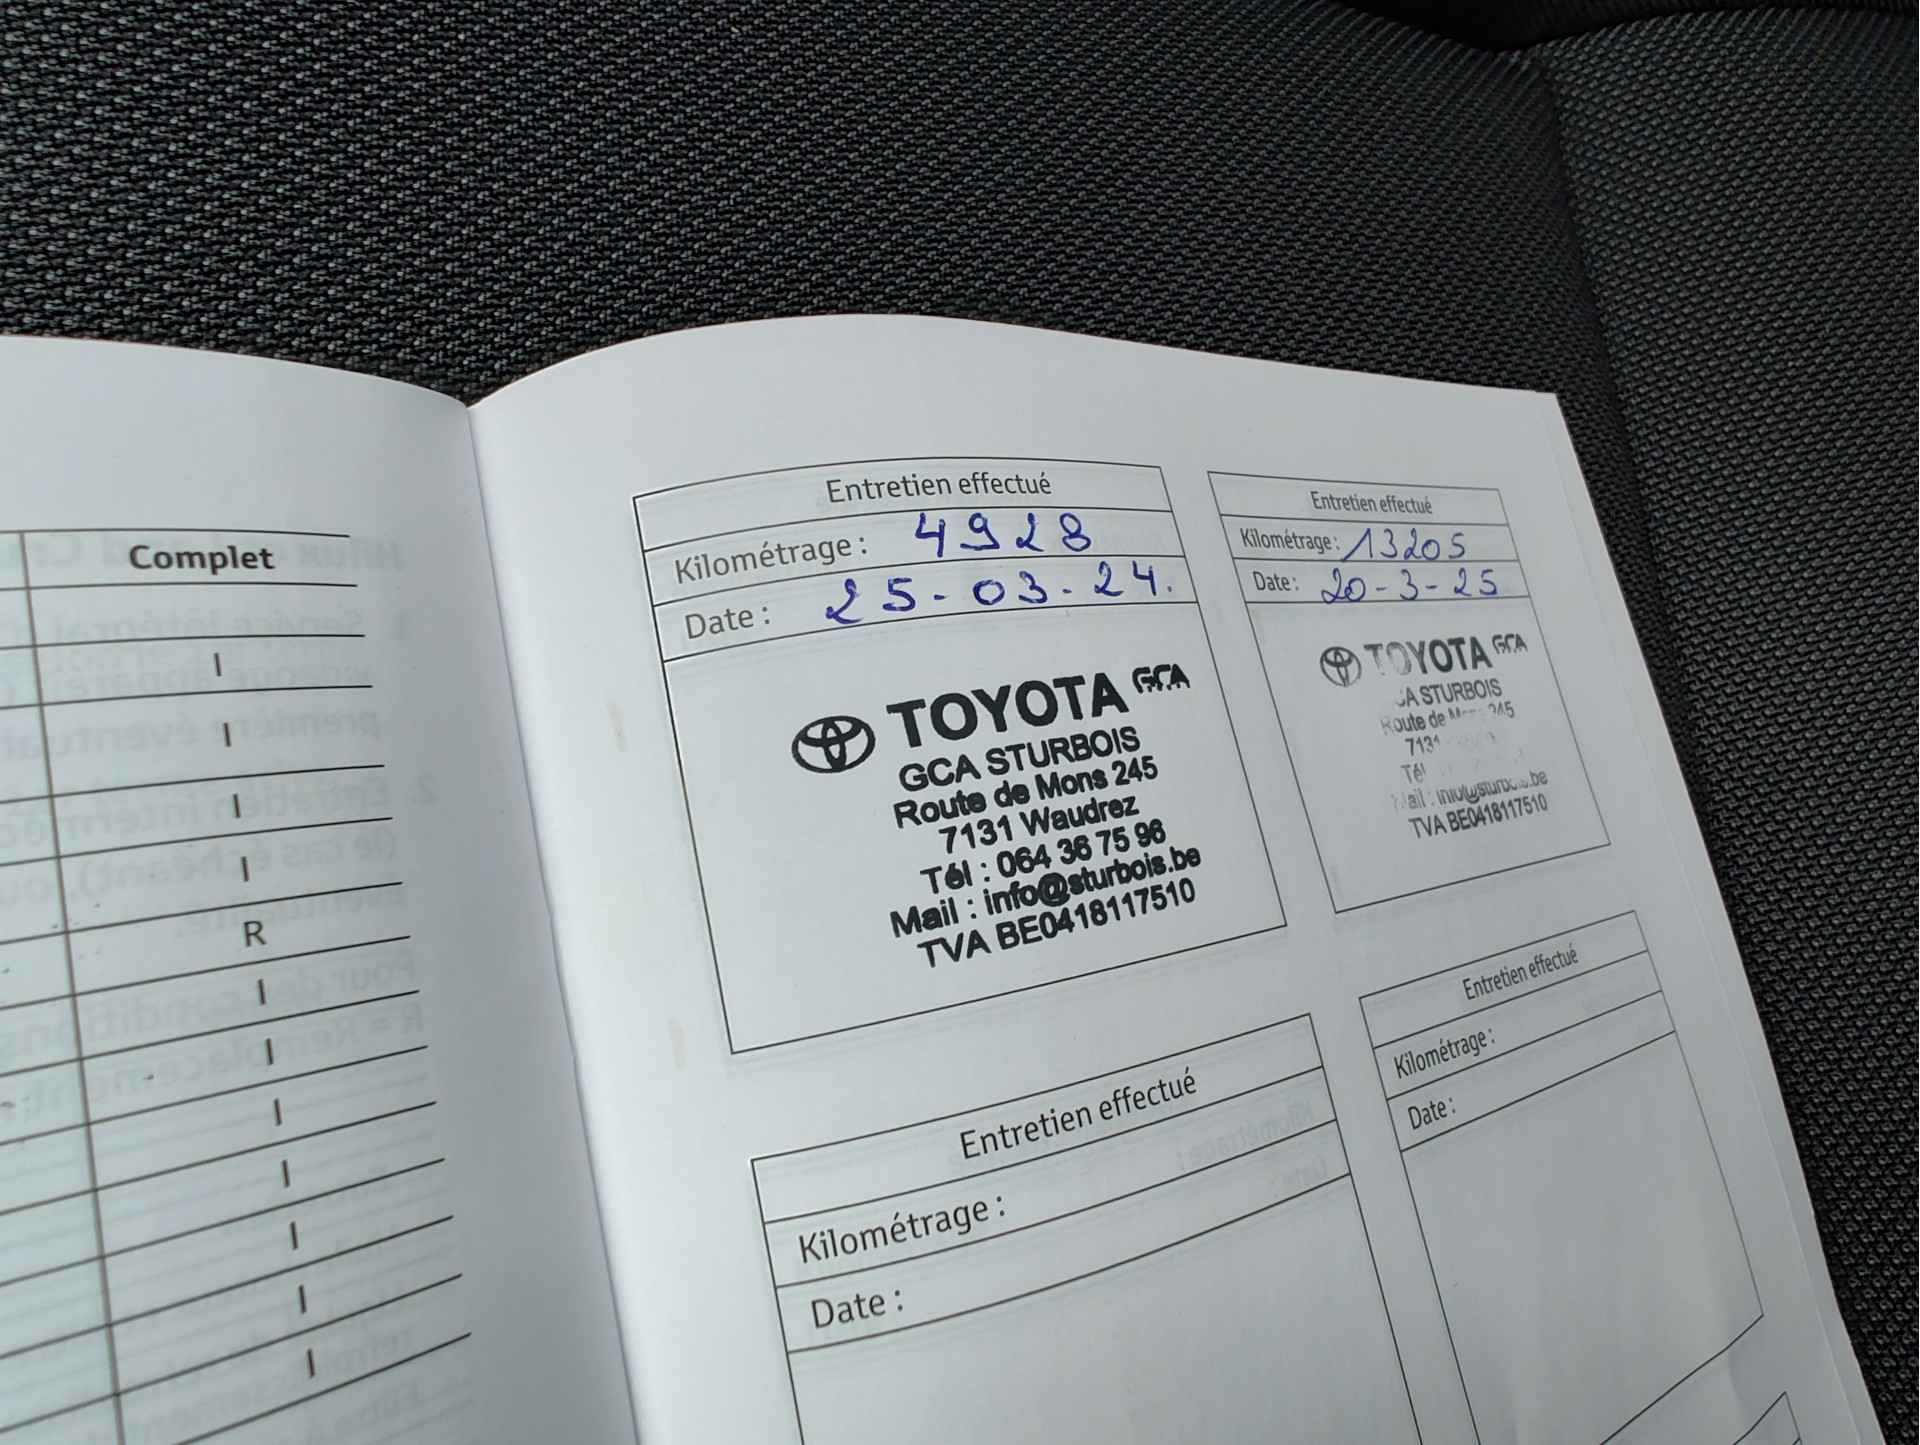 Complet
I
I
I
I
R
I
I
I
I
I
I
I
Entretien effectué
Kilométrage : 4928
Date : 25-03-24.
TOYOTA GCA
GCA STURBOIS
Route de Mons 245
7131 Waudrez
Tél : 064 36 75 96
Mail : info@sturbois.be
TVA BE0418117510
Entretien effectué
Kilométrage : 13205
Date : 20-3-25
TOYOTA GCA
GCA STURBOIS
Route de Mons 245
7131
Tél
Mail : info@sturbois.be
TVA BE0418117510
Entretien effectué
Kilométrage :
Date :
Entretien effectué
Kilométrage :
Date :